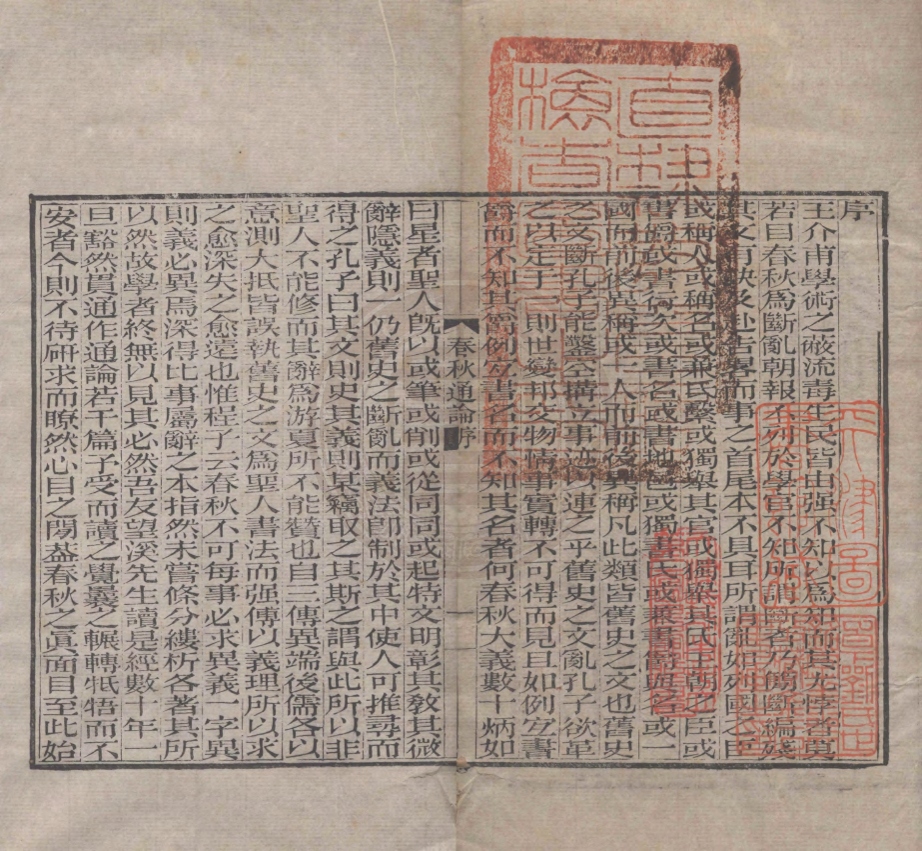 序
王介甫學術之蔽流毒生民皆由强不知以爲知而其尤悖者莫
若目春秋爲斷亂朝報不列於學官不知所謂斷者乃簡斷編殘
其文有缺及赴告畧而事之首尾本不具耳所謂亂如列國之臣
或稱人或稱名或兼氏繫或獨舉其官或獨舉其氏王朝之臣或
書爵或書行次或書名或書地或獨書氏或兼書爵與名或一
國而前後異稱或一人而前後異稱凡此類皆舊史之文也舊史
之文斷孔子能鑿空構立事迹以連之乎舊史之文亂孔子欲革
之以定于一則世變邦交物情事實轉不可得而見且如例宜書
爵而不知其爵例宜書名而不知其名者何春秋大義數十炳如
春秋通論序
一
日星者聖人旣以或筆或削或從同同或起特文明彰其敎其微
辭隱義則一仍舊史之斷亂而義法卽制於其中使人可推尋而
得之孔子曰其文則史其義則某竊取之其斯之謂與此所以非
聖人不能修而其辭爲游夏所不能贊也自三傳異端後儒各以
意測大抵皆誤執舊史之文爲聖人書法而强傅以義理所以求
之愈深失之愈遠也惟程子云春秋不可每事必求異義一字異
則義必異焉深得比事屬辭之本指然未嘗條分縷析各著其所
以然故學者終無以見其必然吾友望溪先生讀是經數十年一
旦豁然貫通作通論若干篇予受而讀之覺曩之輾轉牴牾而不
安者今則不待硏求而瞭然心目之閒葢春秋之眞面目至此始